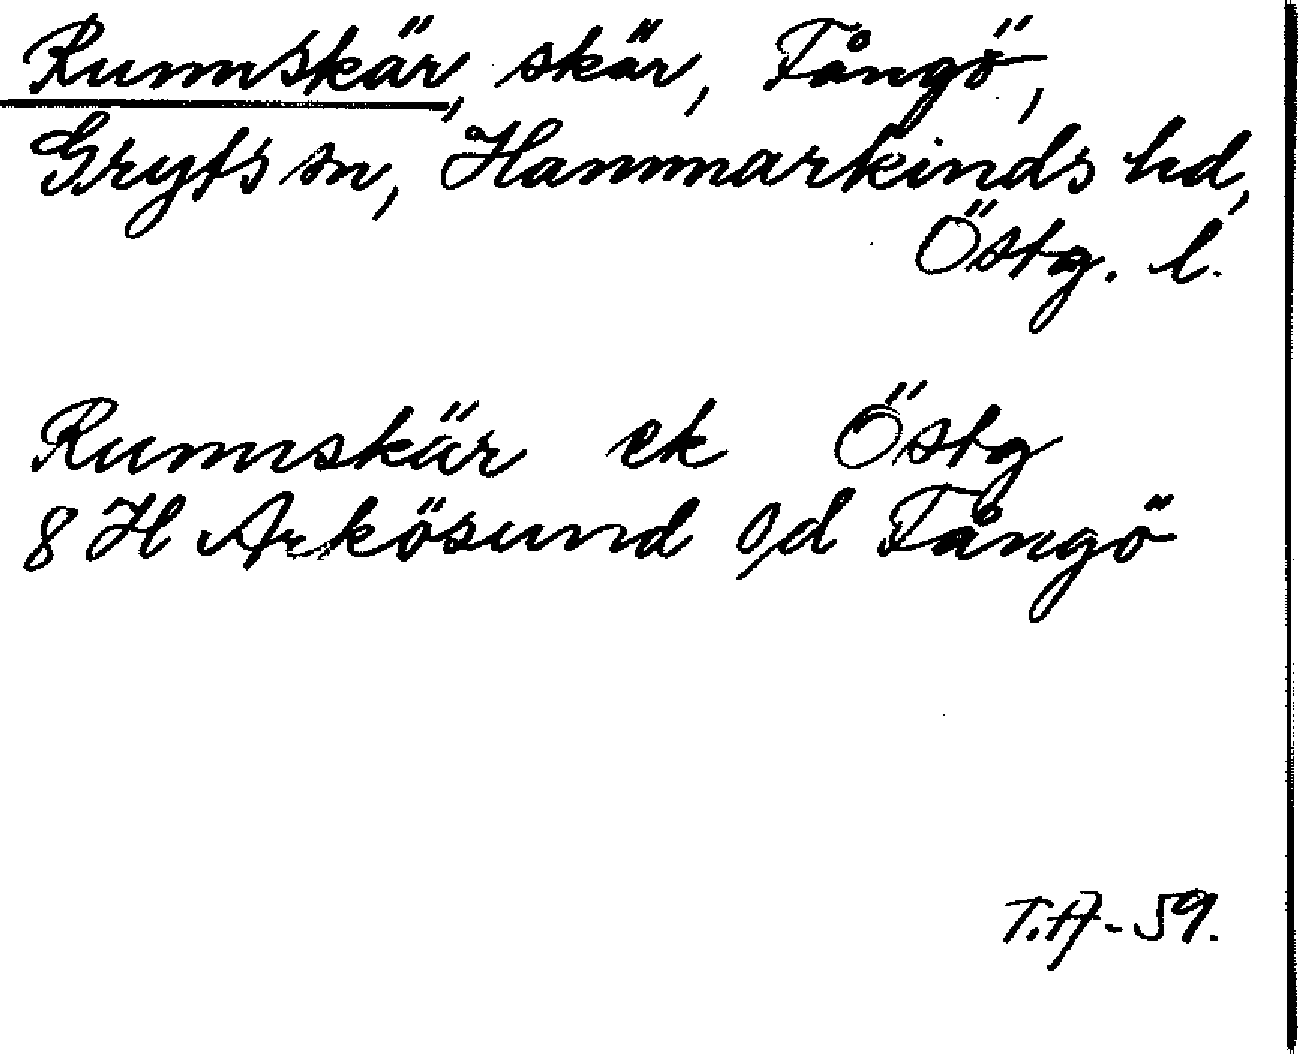 Rumskär, skär, Fångö,
Gryts sn, Hammarkinds hd,
Östg. l.
Rumskär ek Östg
8 H Arkösund s/d Fångö
T.A-59.